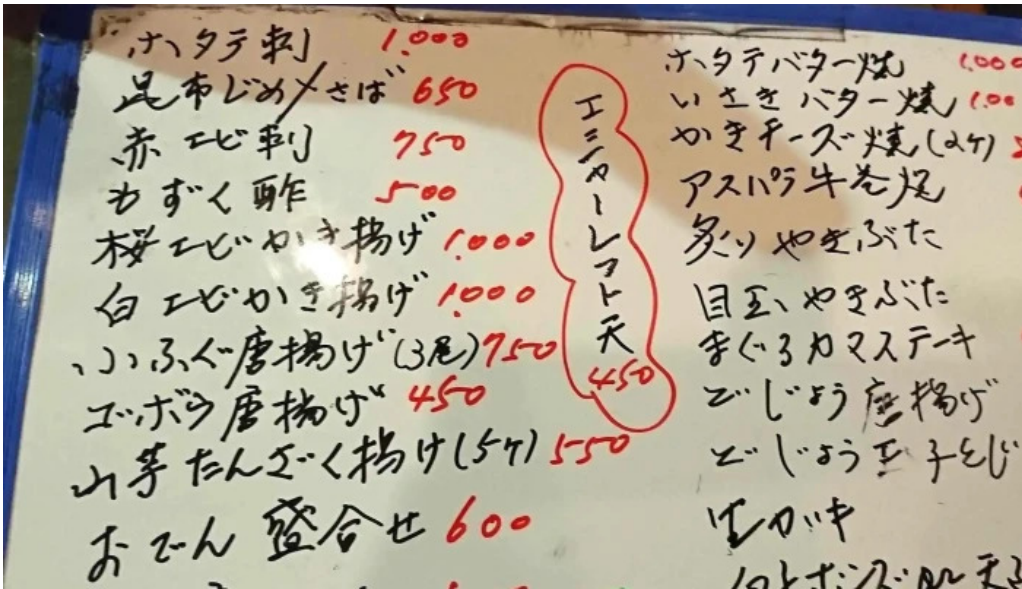 ホタテ刺 1.000
昆布じめ〆さば 650
赤エビ刺 750
もずく酢 500
桜エビかき揚げ 1.000
白エビかき揚げ 1.000
小ふぐ唐揚げ(3尾) 750
ゴボウ唐揚げ 450
山芋たんざく揚げ(5ケ) 550
おでん盛合せ 600
エシャーレット天
450
ホタテバター焼 1.000
いさきバター焼 1.00
かきチーズ焼(2ケ)
アスパラ牛巻焼
炙りやきぶた
目玉やきぶた
まぐろカマステーキ
どじょう唐揚げ
どじょう玉子とじ
生ガキ